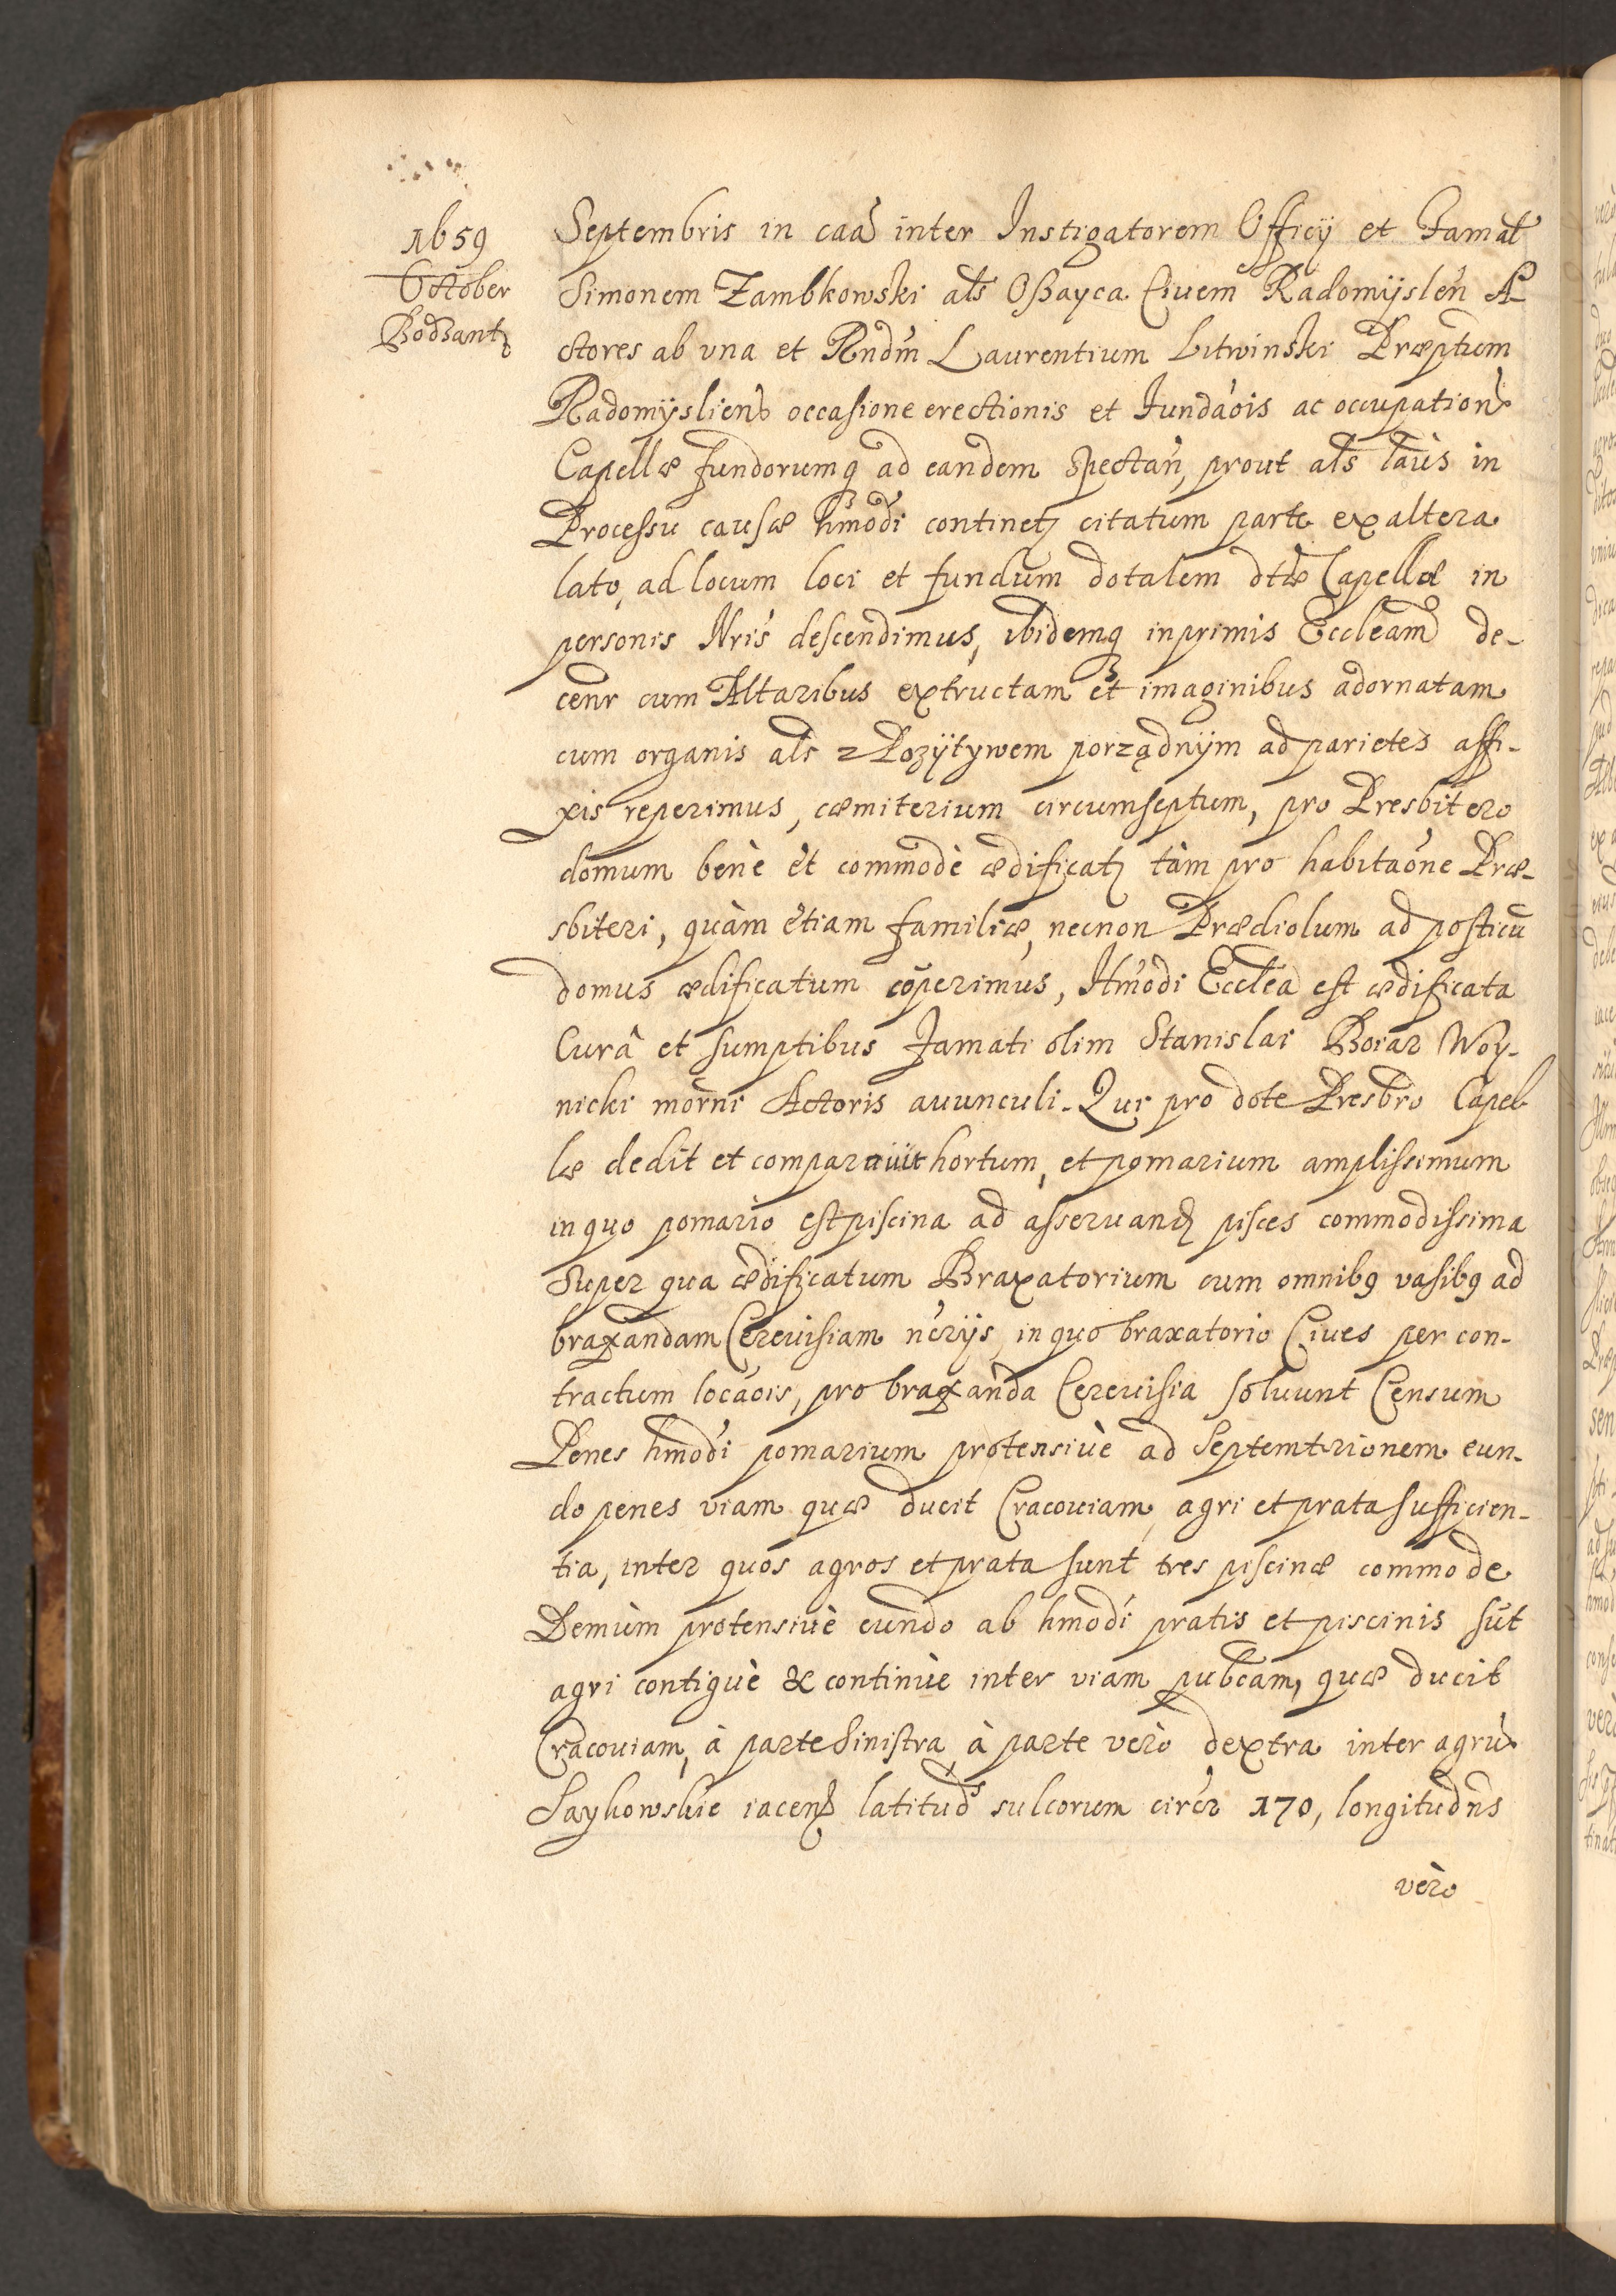 1659
October
Bodzant
Septembris in caã inter Instigatorem Officÿ et Famat
Simonem Zambkowski als Oßayca Ciuem Radomÿsleń A-
ctores ab vna et Rndm̃ Laurentium Litwinski Præptum
Radomÿsliens occasione erectionis et Fundaõis ac occupation
Capellæ fundorumq ad eandem spectań, prout als laũs in
Processu causæ hmõdi continetz citatum parte ex altera
lato, ad locum loci et fundum dotalem dtæ Capellæ in
personis Nris descendimus, ibidemq inprimis Eccleam de-
center cum Altaribus extructam et imaginibus adornatam
cum organis als z Pozÿtywem porządnÿm ad parietes affi-
xis reperimus, cæmiterium circumseptum, pro Presbitero
domum benè et commodè ædificatz tàm pro habitaõne Præ-
sbiteri, quàm etiam familiæ, necnon Prædiolum ad posticũ
domus ædificatum cõperimus, Hmõdi Ecclea est ædificata
Curâ et sumptibus Famati olim Stanislai Boiar Woy-
nicki mõrni Actoris auunculi. Qui pro dote Presbro Capel-
læ dedit et comparauit hortum, et pomarium amplissimum
in quo pomario est piscina ad asseruandz pisces commodissima
Super qua ædificatum Braxatorium cum omnibq vasibq ad
braxandam Cereuisiam nẽrÿs, in quo braxatorio Ciues per con-
tractum locaõis, pro braxanda Cereuisia soluunt Censum
Penes hmõdi pomarium protensiuè ad Septemtrionem eun-
do penes viam quæ ducit Cracouiam, agri et prata sufficien-
tia, inter quos agros et prata sunt tres piscinæ commodè
Demùm protensiuè eundo ab hmõdi pratis et piscinis sũt
agri contiguè & continùe inter viam pubcam, quæ ducit
Cracouiam, à parte sinistra, à parte verò dextra inter agrũ
Saykowskie iacen latituds sulcorum circr 170, longitudns
verò